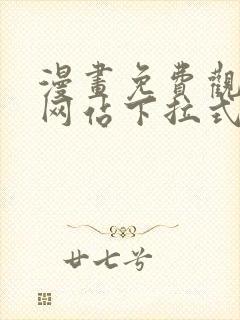 漫畫免費觀
网佔下拉式
廿七号